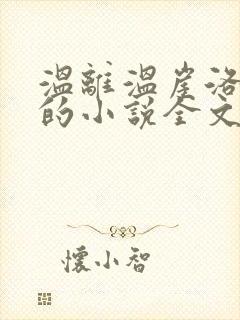 溫離溫崖洛
的小說全文
懷小智